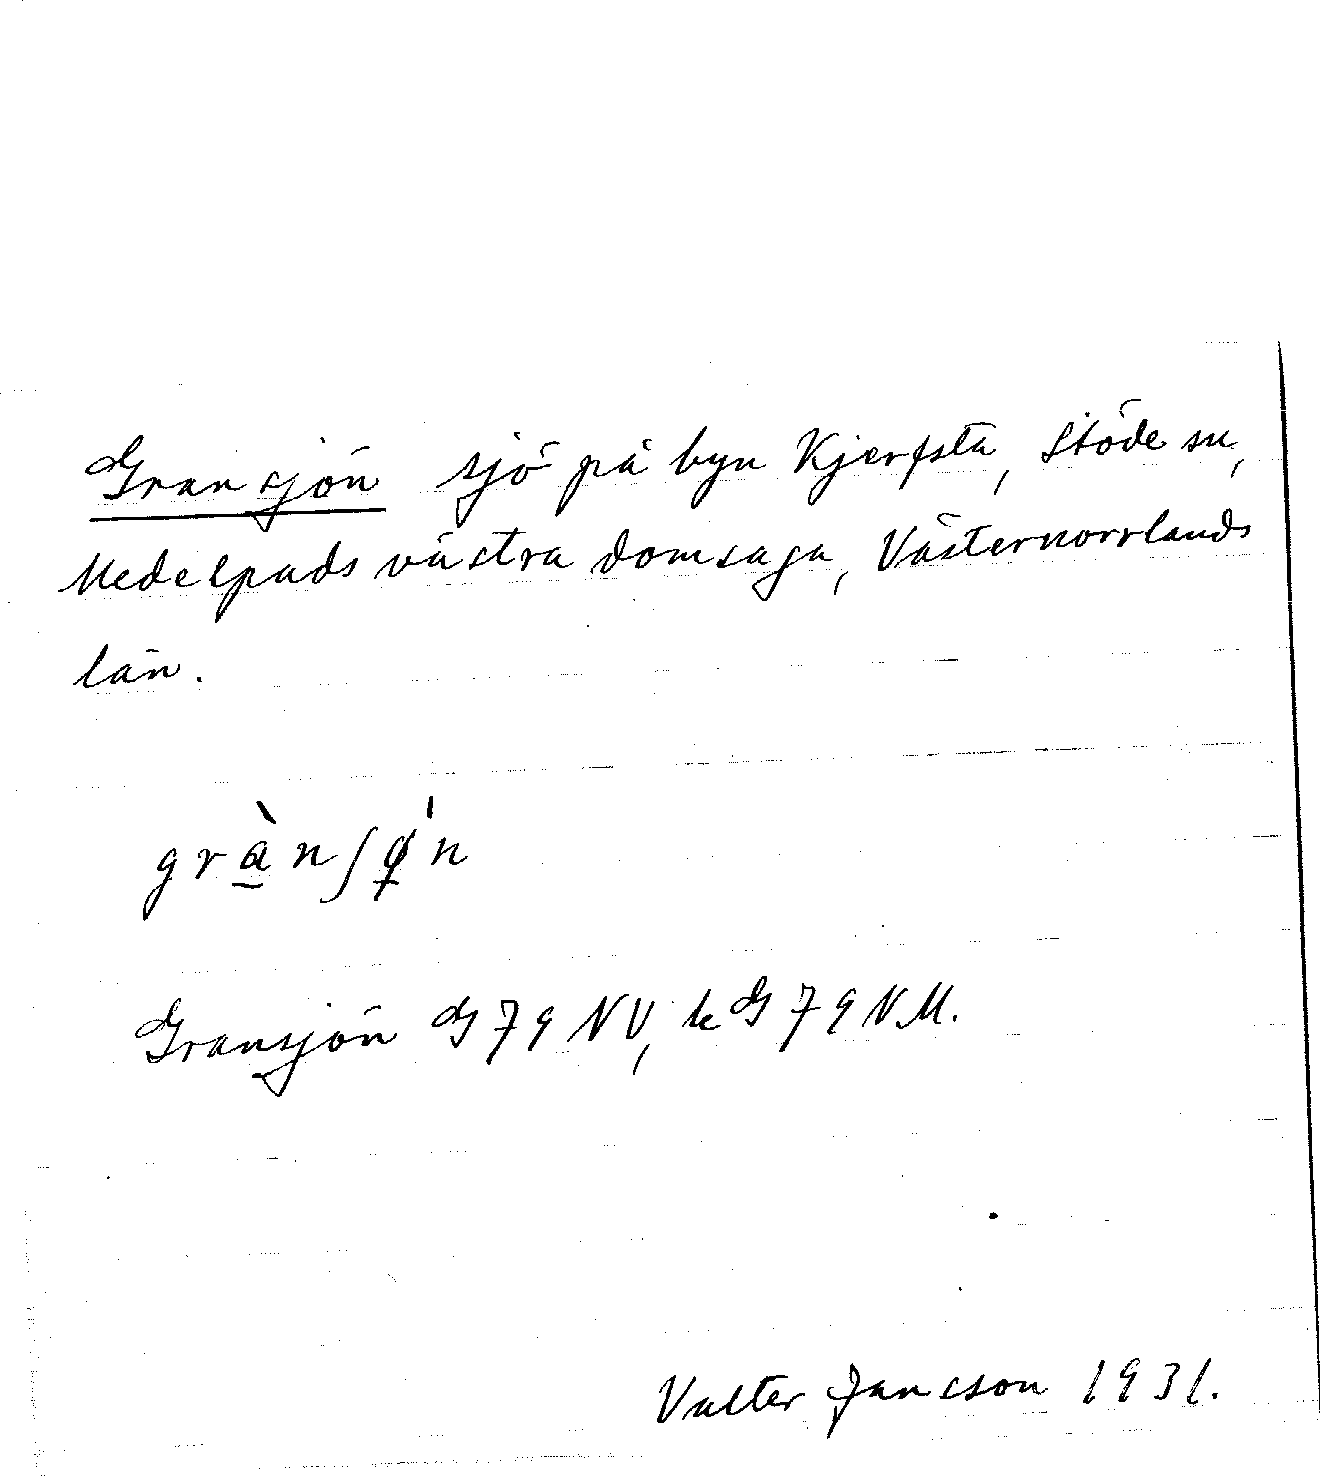 Gransjön sjö på byn Kjerfsta, Stöde sn,
Medelpads västra domsaga, Västernorrlands
län.
grà̲nʃǿ̲n
Gransjön G 79 NV, k G 79 NM.
Valter Jansson 1931.